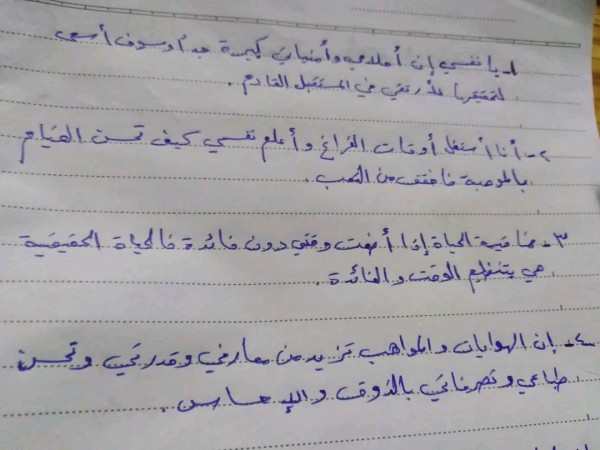 ١- يا نفسي إن أحلامي وأمنياتي كبيرة جداً وسوف أسعى
لتحقيقها لأرتقي في المستقبل القادم .
٢- أنا أستغل أوقات الفراغ وأعلم نفسي كيف تحسن القيام
بالموهبة فأخفف من التعب .
٣- ما قيمة الحياة إذا أضعت وقتي دون فائدة فالحياة الحقيقية
هي بتنظيم الوقت والفائدة .
٤- إن الهوايات والمواهب تزيد من معارفي وقدرتي وتحسن
طباعي وتصرفاتي بالذوق والإحساس .